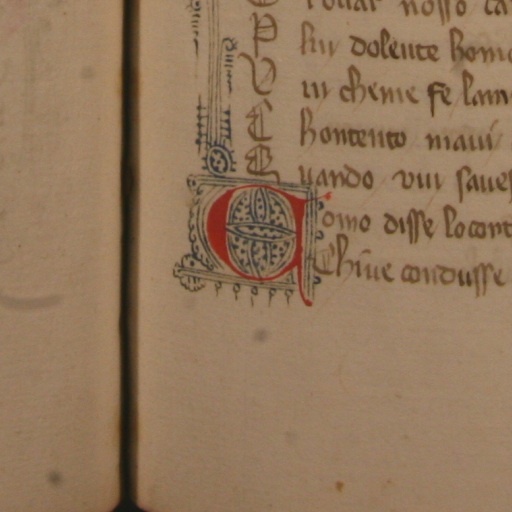 rouar nosso ca
P iu dolente homo
V iu cheme fe lam
C hontento maui
Q uando viu saues
Como disse locont
Chi ve condusse